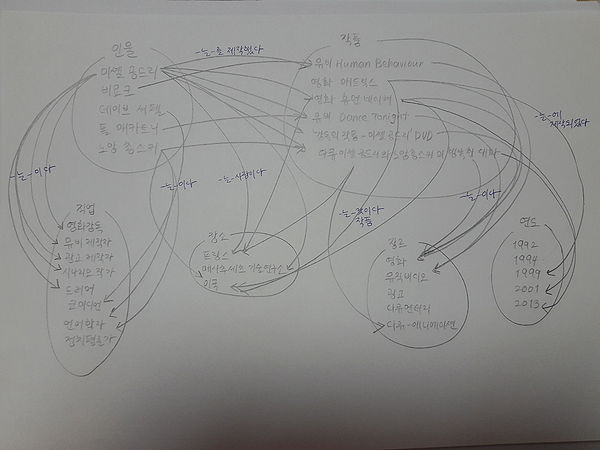 인물
미셸 공드리
비요크
데이브 셔펠
폴 매카트니
노암 촘스키
-는-를 제작했다
작품
뮤비 Human Behaviour
영화 매트릭스
영화 휴먼 네이처
뮤비 Dance Tonight
감독의 작품-미셸 공드리 DVD
다큐 미셸 공드리와 노암 촘스키의 행복한 대화
-는-에
제작되었다
-는-이다
-는-이다
-는-사람이다
-는-것이다
작품
-는-이다
직업
영화감독
뮤비 제작자
광고 제작자
시나리오 작가
드러머
코미디언
언어학자
정치평론가
장소
프랑스
매사추세츠 기술연구소
미국
장르
영화
뮤직비디오
광고
다큐멘터리
다큐-애니메이션
연도
1992
1994
1999
2001
2013